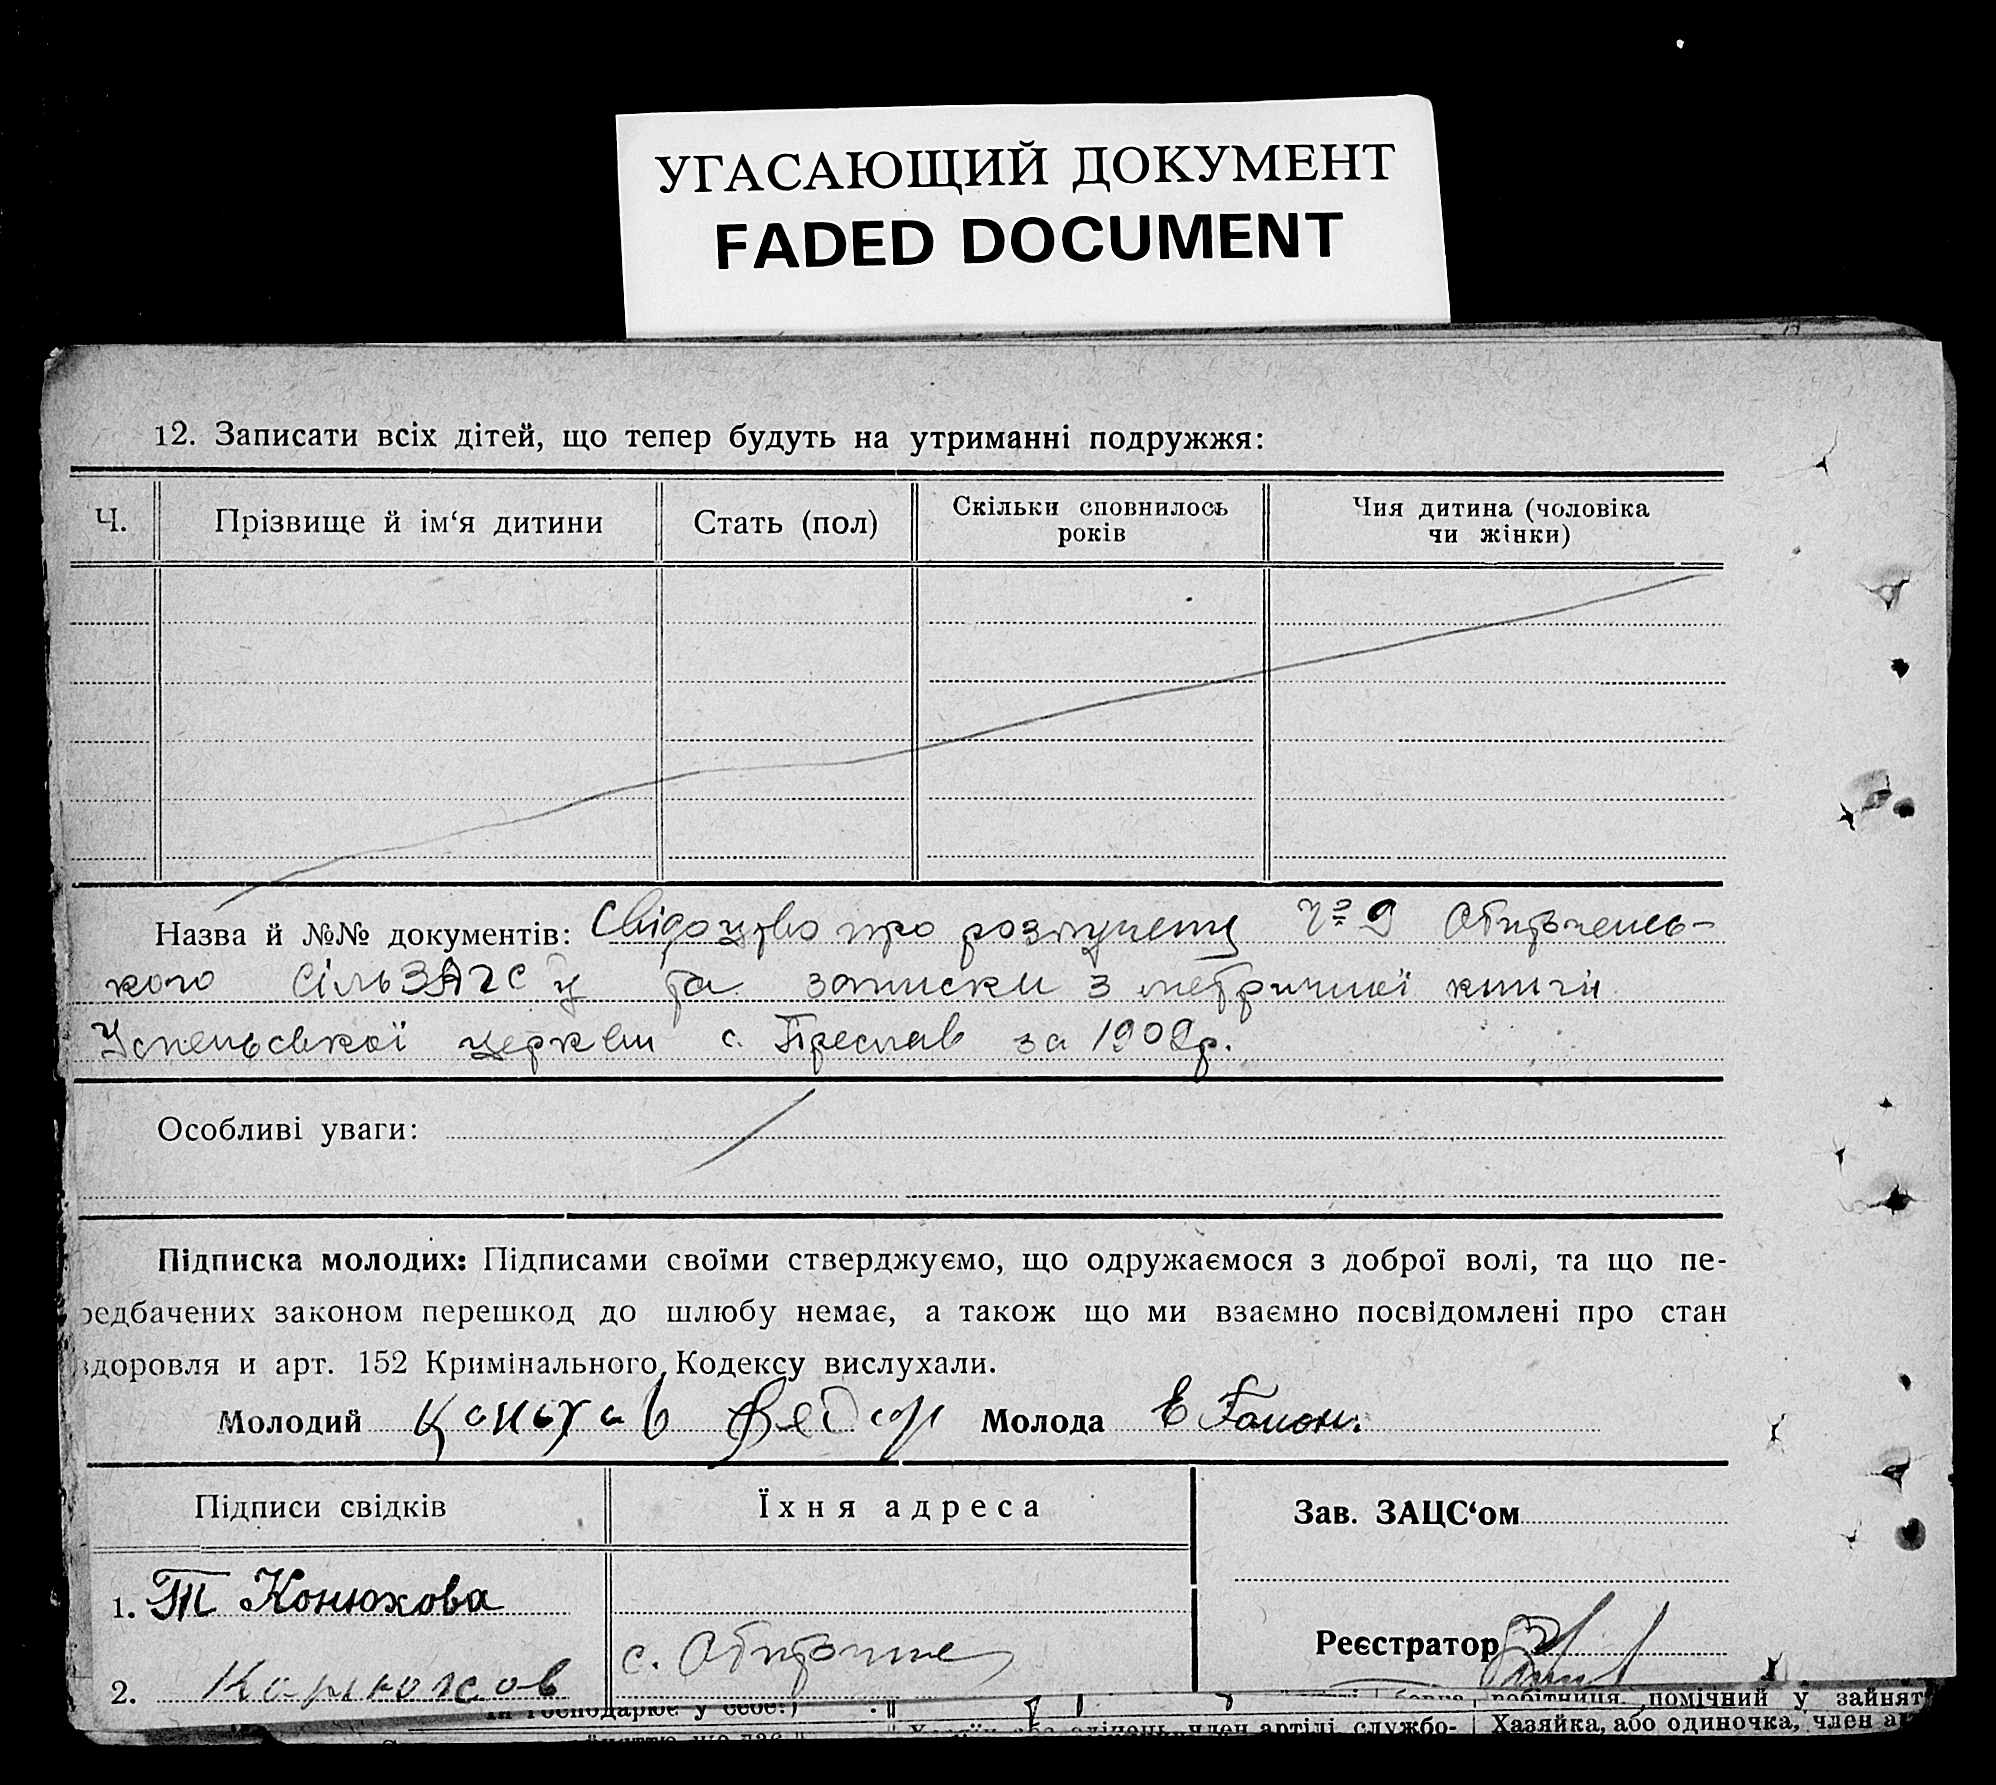 УГАСАЮЩИЙ ДОКУМЕНТ
FADED DOCUMENT
12. Записати всіх дітей, що тепер будуть на утриманні подружжя:
Ч.
Прізвище й ім‘я дитини
Стать (пол)
Скільки сповнилось
років
Чия дитина (чоловіка
чи жінки)
Назва й №№ документів: Свідоцтво про розлучення № 9
кого сільЗАГСу та записки з метричної книги
Успенської церкви с. Преслав за 1909р.
Особливі уваги:
Підписка молодих: Підписами своїми стверджуємо, що одружаємося з доброї волі, та що пе-
редбачених законом перешкод до шлюбу немає, а також що ми взаємно посвідомлені про стан
здоровля и арт. 152 Кримінального Кодексу вислухали.
Молодий Федор Молода Е
Підписи свідків
Їхня адреса
Зав. ЗАЦС‘ом
1. Т Конюхова
2.
с.
Реєстратор
робітниця, помічний у зайнят
член артілі, службо-
Хазяйка, або одиночка, член а